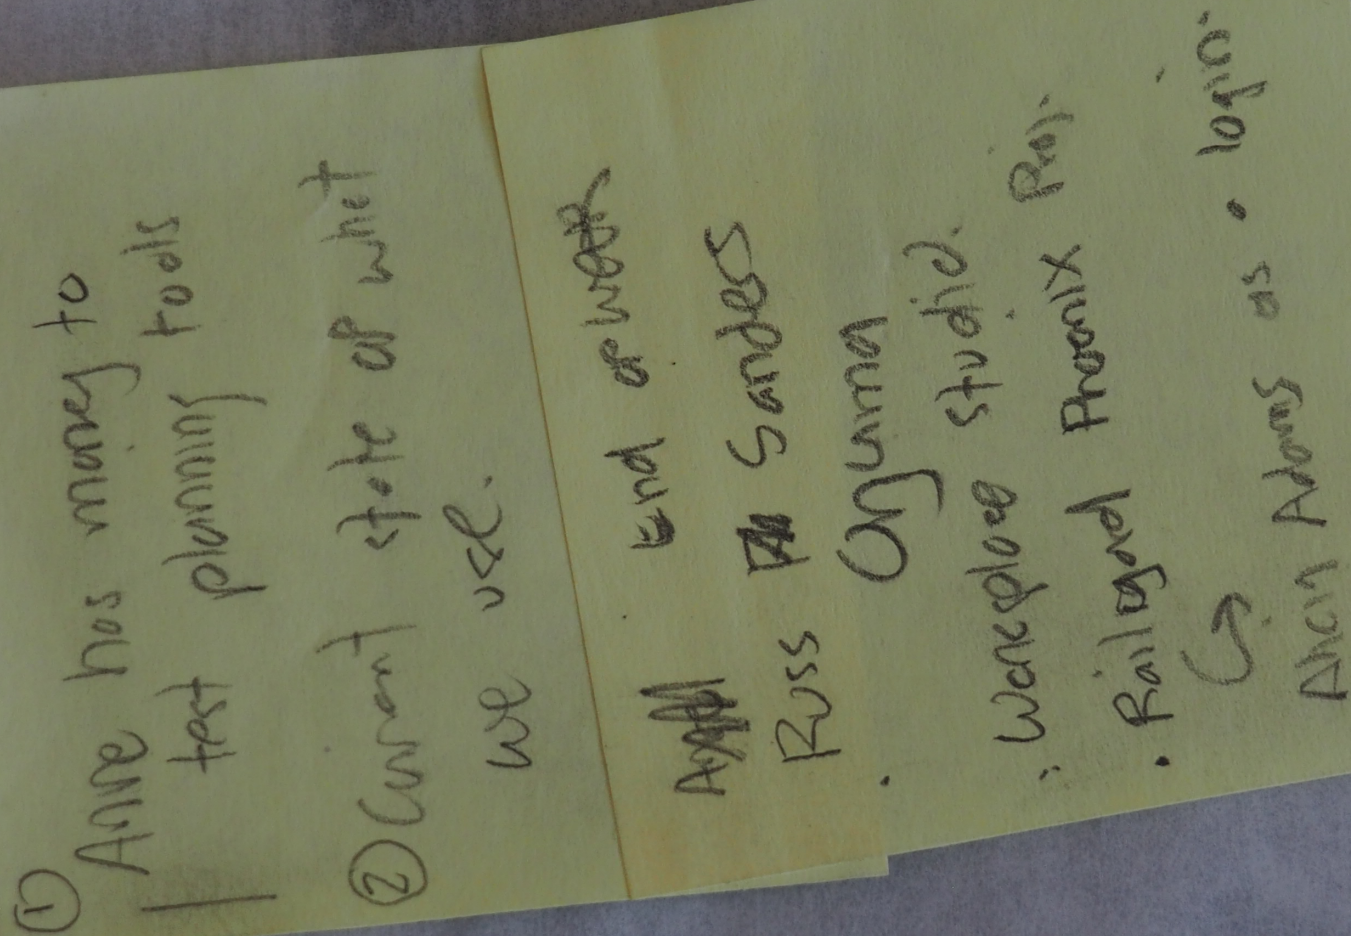 ① Anne has money to
test planning tools
② Current state of what
we use.
End of week
Russ Sanders
Workplace studio.
Railyard Phoenix Proj.
Ahern Adams as • login.